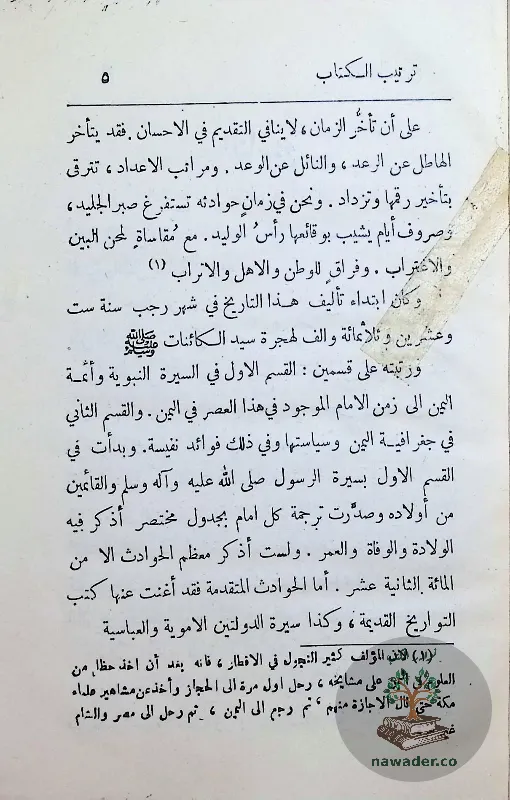 ترتيب الكتاب ٥
على أن تأخُّر الزمان، لا ينافي التقديم في الاحسان. فقد يتأخر
الهاطل عن الرعد، والنائل عن الوعد. ومراتب الاعداد، تترقى
بتأخير رقمها وتزداد. ونحن في زمان حوادثه تستفرغ صبر الجليد،
وصروف أيام يشيب بوقائعها رأسُ الوليد. مع مُقاساةٍ لمحن البين
والاغتراب. وفراقٍ للوطن والاهل والاتراب (١)
وكان ابتداء تأليف هذا التاريخ في شهر رجب سنة ست
وعشرين وثلاثمائة والف لهجرة سيد الكائنات ﷺ
ورتبته على قسمين: القسم الاول في السيرة النبوية وأئمة
اليمن الى زمن الامام الموجود في هذا العصر في اليمن. والقسم الثاني
في جغرافية اليمن وسياستها وفي ذلك فوائد نفيسة. وبدأت في
القسم الاول بسيرة الرسول صلى الله عليه وآله وسلم والقائمين
من أولاده وصدَّرت ترجمة كل امام بجدول مختصر أذكر فيه
الولادة والوفاة والعمر. ولست أذكر معظم الحوادث الا من
المائة الثانية عشر. أما الحوادث المتقدمة فقد أغنت عنها كتب
التواريخ القديمة، وكذا سيرة الدولتين الاموية والعباسية
(١) المؤلف كثير التجول في الاقطار، فانه بعد أن اخذ حظا من
العلوم على مشايخه، رحل اول مرة الى الحجاز وأخذ عن مشاهير علماء
مكة حتى نال الاجازة منهم، ثم رجع الى اليمن، ثم رحل الى مصر والشام
nawader.co